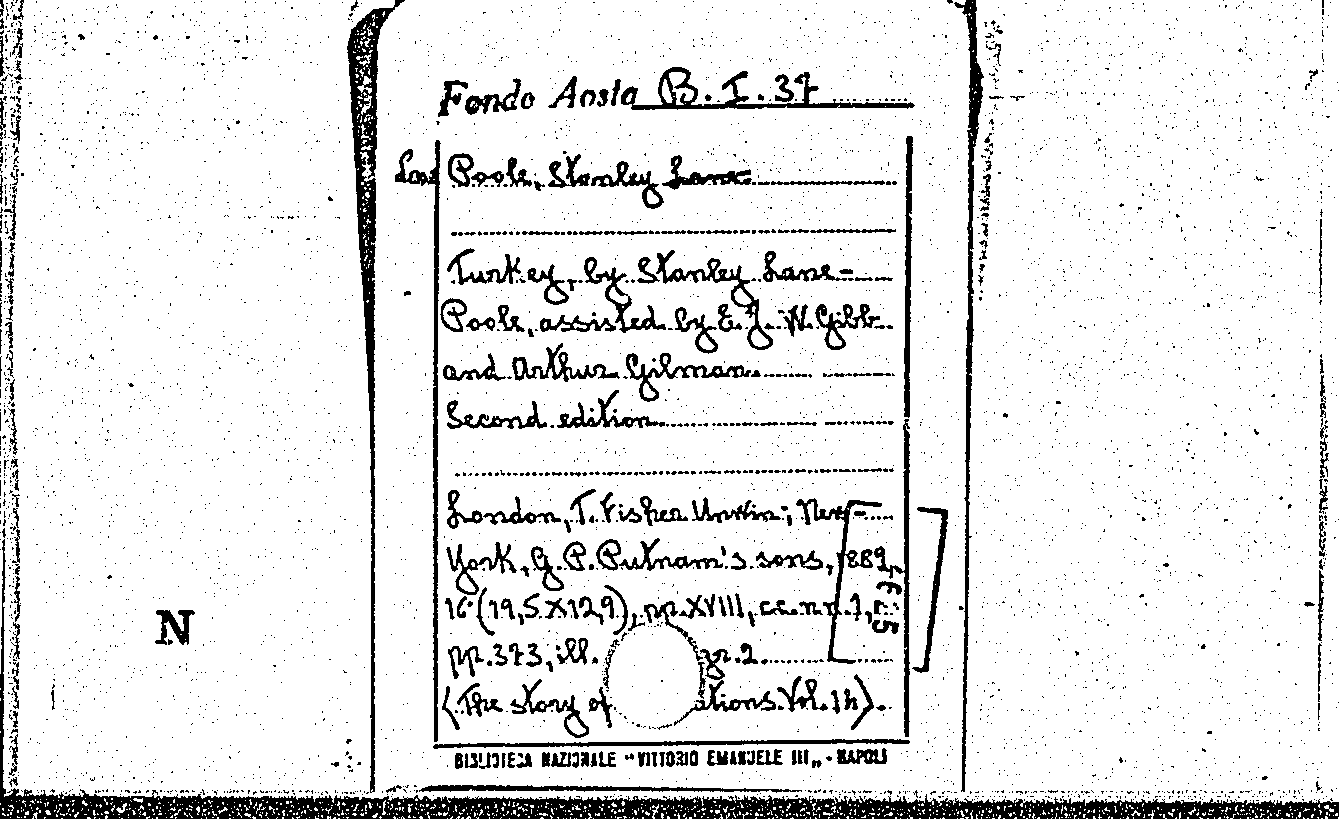 Fondo Aosta B. I. 37
Lane Poole, Stanley Lane-
Turkey, by Stanley Lane-
Poole, assisted by E. J. W. Gibb
and Arthur Gilman.
Second edition.
London, T. Fisher Unwin; New-
York, G. P. Putnam's sons, 1889,
16° (19,5 X 12,9), pp. XVIII, cc. n n. 1,
pp. 373, ill. 2.
(The story of ations. Vol. 14).
BIBLIOTECA NAZIONALE "VITTORIO EMANUELE III„ - NAPOLI
N